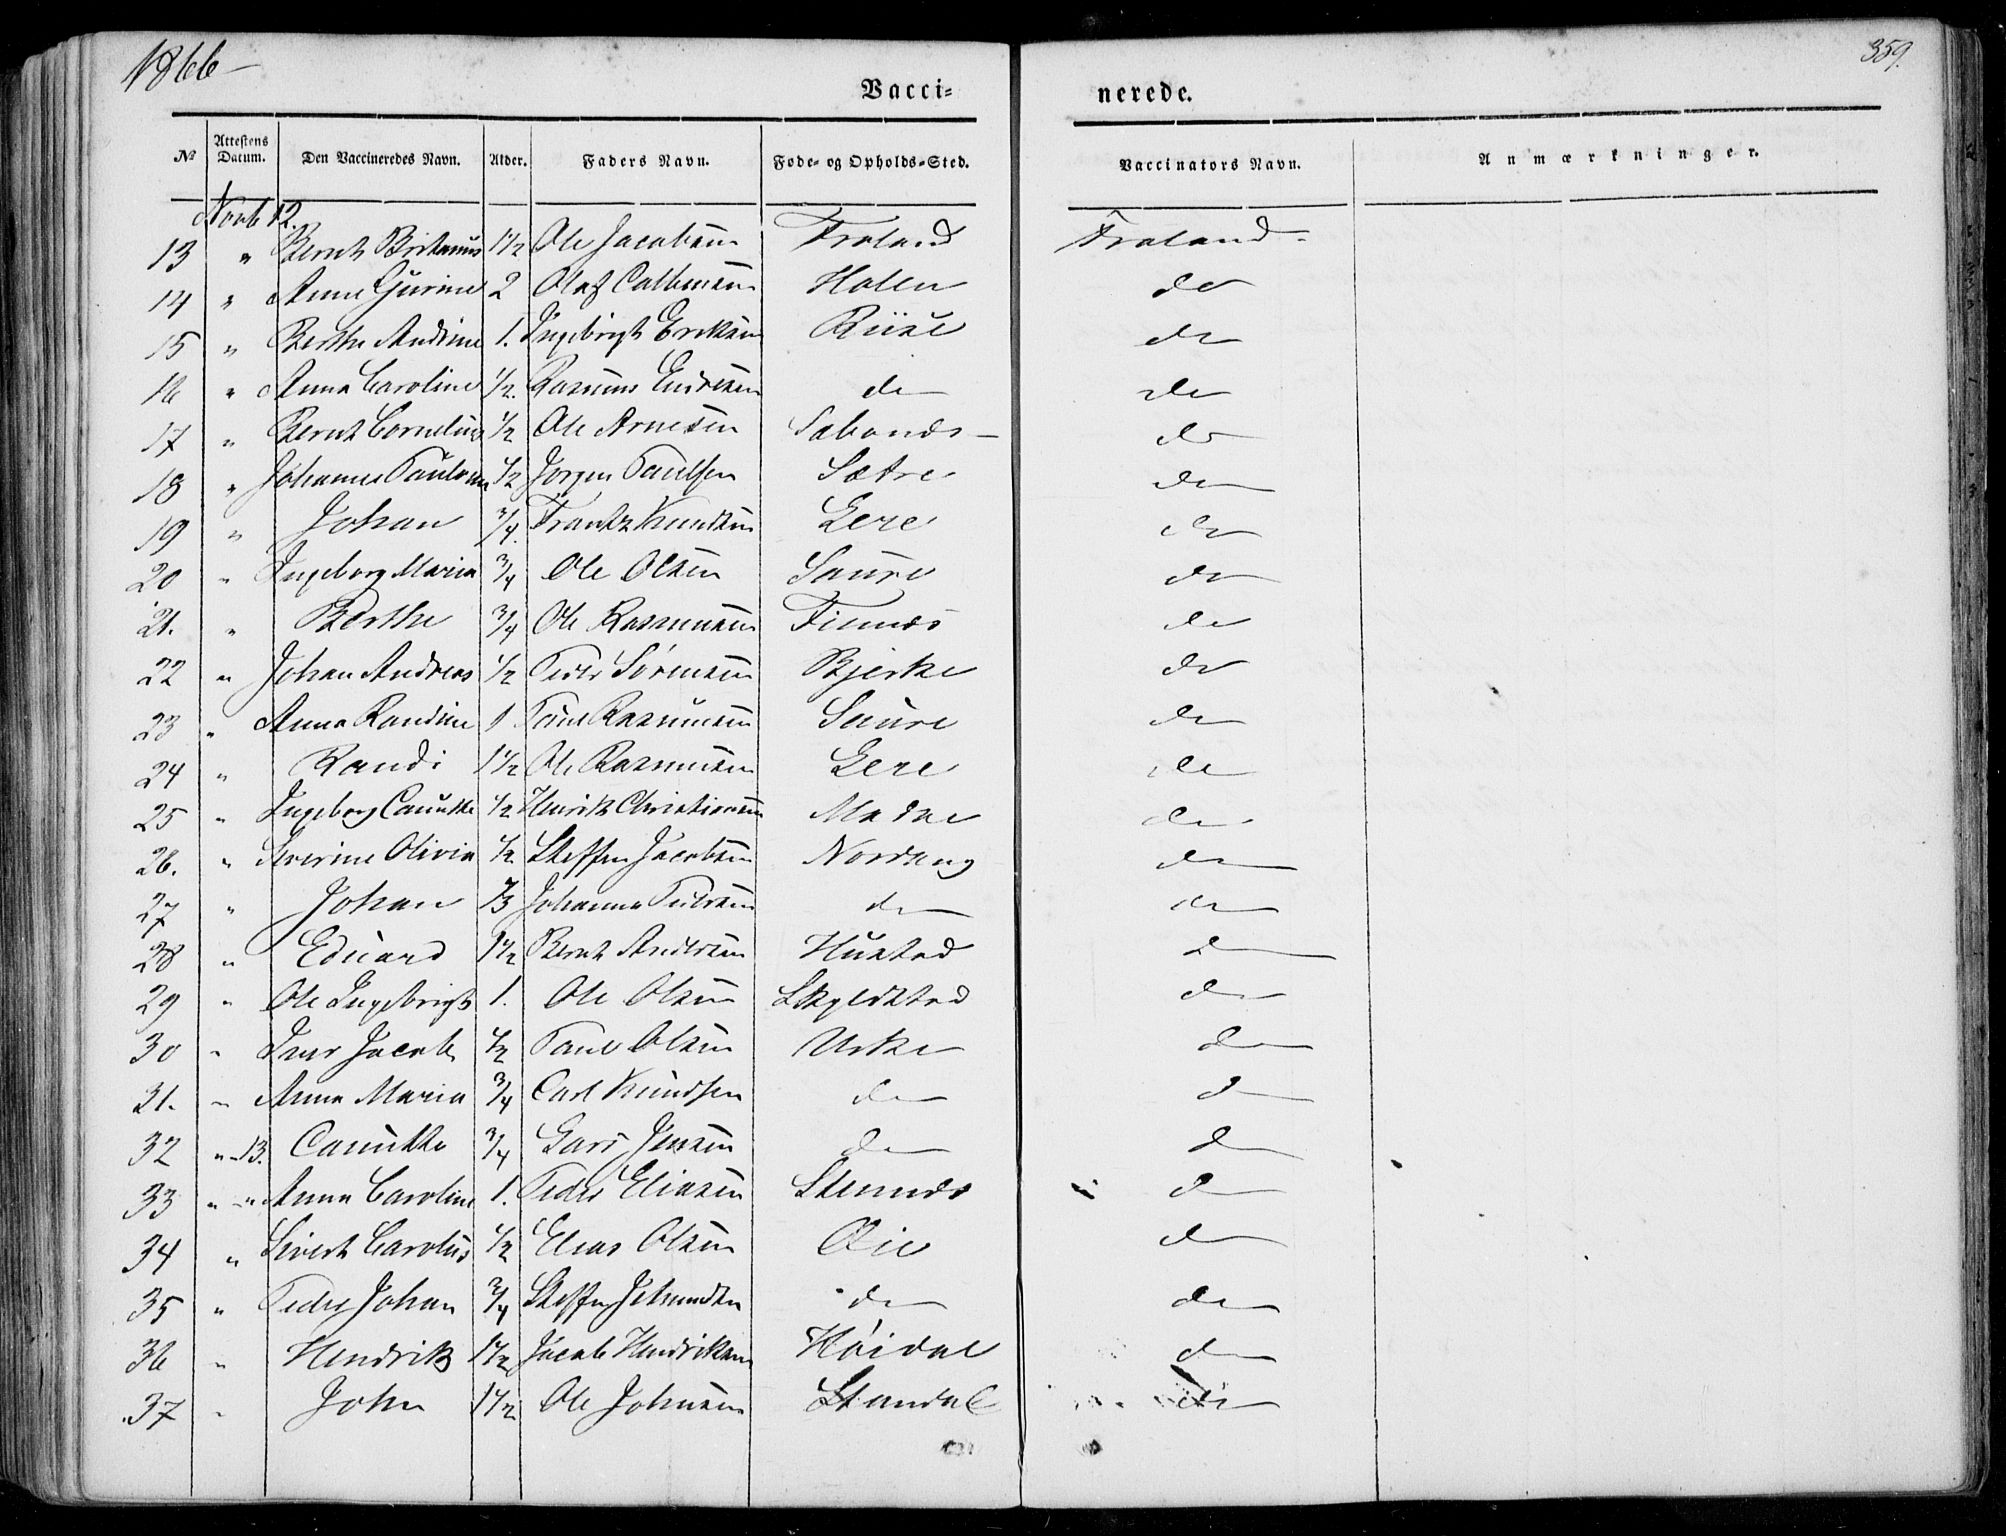 1866
359.
Vacci=
nerede.
№ Attestens Datum. Den Vaccineredes Navn. Alder. Faders Navn. Føde- og Opholds-Sted. Vaccinators Navn. Anmærkninger.
Novb 12.
13 " Bernt 1½ Ole Jacobsen Froland Froland
14 " Anne Gurine 2 Olaf Holen do
15 " Berthe Andrine 1. Ingebrigt Eriksen Riise do
16 " Anna Caroline ½. Rasmus Endresen do do
17 " Bernt Cornelius ½ Ole Arnesen do
18 " Johannes ½ Jørgen Paulsen Sætre do
19 " Johan ¾. Frantz Knudsen Lere do
20 " Ingeborg Maria ¾ Ole Olsen Saure do
21. " Berthe ¾ Ole Rasmussen Finnes do
22 " Johan Andreas ½ Peder Sørensen Bjerke do
23 " Anna Randine 1 Paul Rasmussen Saure do
24 " Randi 1½ Ole Rasmussen Lere do
25 " Ingeborg Canutte ½ Henrik Christiansen do
26. " Severine Olivia ½ Steffen Jacobsen Nordang do
27 " Johan Johannes do do
28 " Eduard 1½ Bernt Andersen Hustad do
29 " Ole Ingebrigt 1. Ole Olsen Skylstad do
30 " Iver Jacob ½ Paul Olsen Urke do
31. " Anna Maria ¾ Carl Knudsen do do
32 " 13. Canutte ¾ Lars Jensen do do
33 " " Anna Caroline 1. Peder Eliasen Stennes do
34 " Sivert Carolus ½ Elias Olsen Øie do
35 " Peder Johan ¾ Steffen do do
36 " Hendrik 1½ Jacob Hendriksen Høidal do
37 " John 1½ Ole Johnsen Standal do